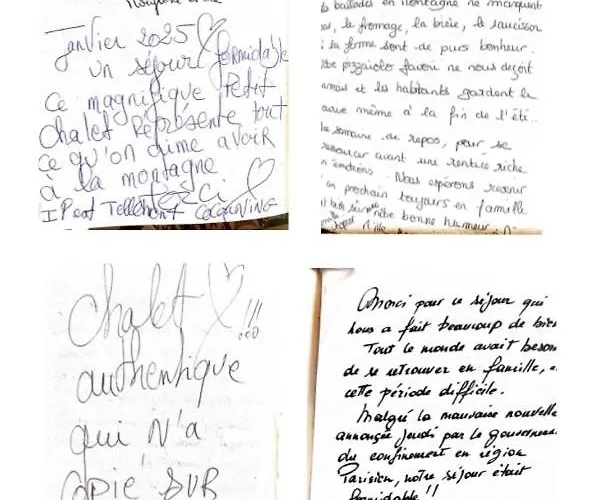 Janvier 2025
un séjour formidable
Ce magnifique Petit
chalet Représente tout
ce qu'on aime avoir
à la montagne
IPest Tellement CocQuNING
ballades en montagne ne manquent
le fromage, la bière, le saucisson
à la ferme sont de purs bonheur.
pizzaiolo favori ne nous déçoit
et les habitants gardent le
même à la fin de l'été.
semaine de repos, pour se
ressourcer avant une rentrée riche
n émotions. Nous espérons revenir
an prochain toujours en famille
et bien sûr notre bonne humeur.
Chalet !!!
authentique
qui N'a
copié SUR
Merci pour ce séjour qui
nous a fait beaucoup de bien
Tout le monde avait besoin
de se retrouver en famille, e
cette période difficile.
Malgré la mauvaise nouvelle
annoncée Jeudi par le gouverneme
du confinement en région
Parisien, notre séjour était
formidable !!